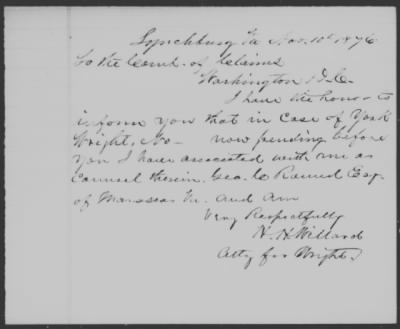 Lynchburg Va Nov. 10th 1876
To the Comt. of Claims
Washington D.C.
I have the honor to
inform you that in case of York
Wright, No – now pending before
you I have associated with me as
Counsel therein, Geo. C Round Esq.
of Manassas Va. and am
Very Respectfully
H. H. Willard
Atty for Wright.